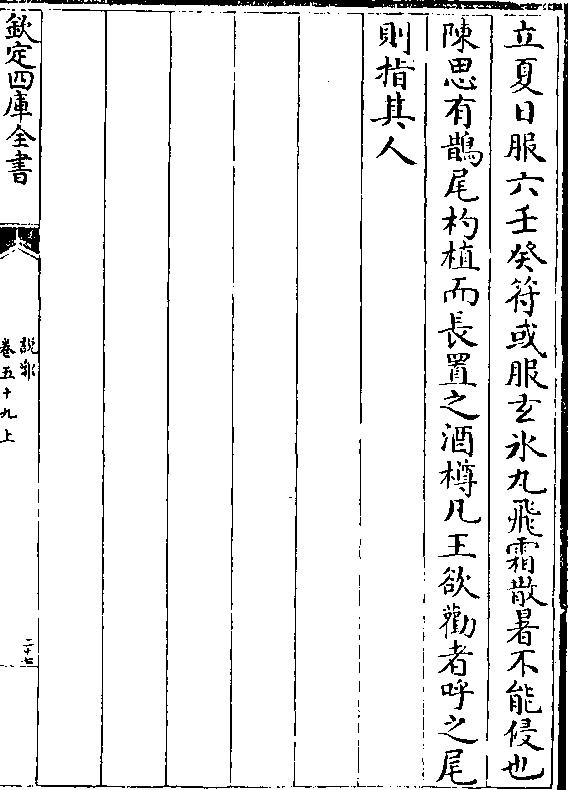 立夏日服六壬癸符或服玄氷丸飛霜散暑不能侵也
陳思有鵲尾杓植而長置之酒樽凡王欲勸者呼之尾
則指其人
欽定四庫全書
說郛
卷五十九上
二十七